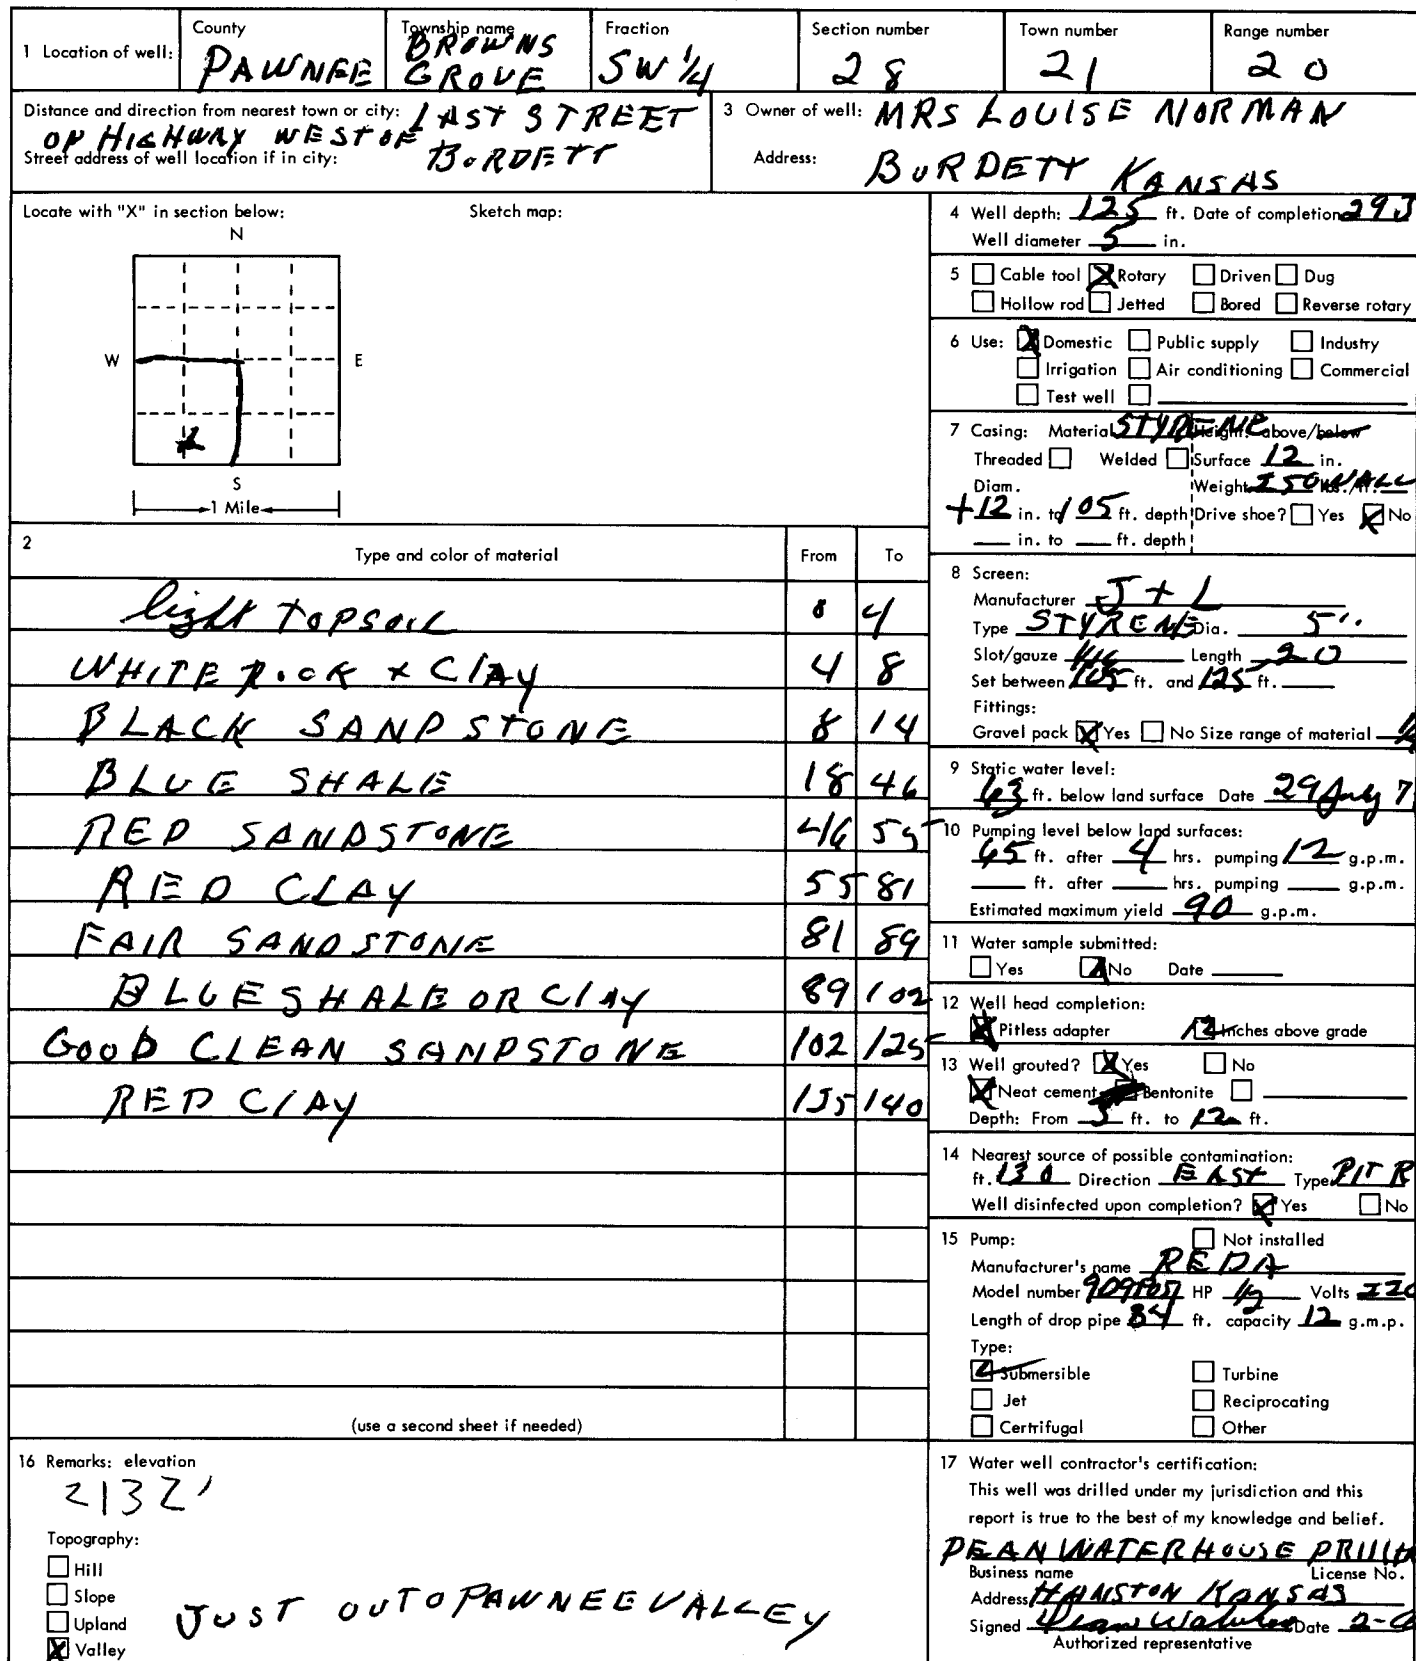 1 Location of well:
County
PAWNEE
Township name
BROWNS
GROVE
Fraction
SW 1/4
Section number
28
Town number
21
Range number
20
Distance and direction from nearest town or city: LAST STREET
ON HIGHWAY WEST OF
Street address of well location if in city: BURDETT
3 Owner of well: MRS LOUISE NORMAN
Address: BURDETT KANSAS
Locate with "X" in section below:
Sketch map:
N
W
E
S
1 Mile
4 Well depth: 125 ft. Date of completion 29 J
Well diameter 5 in.
5 Cable tool Rotary Driven Dug
Hollow rod Jetted Bored Reverse rotary
6 Use: Domestic Public supply Industry
Irrigation Air conditioning Commercial
Test well
7 Casing: Material STYRENE Height: above/below
Threaded Welded Surface 12 in.
Diam. Weight 250 WALL lbs./ft.
+12 in. to 105 ft. depth Drive shoe? Yes No
in. to ft. depth
2
Type and color of material
From
To
light TOPSOIL 0 4
WHITE ROCK + CLAY 4 8
BLACK SANDSTONE 8 14
BLUE SHALE 18 46
RED SANDSTONE 46 55
RED CLAY 55 81
FAIR SANDSTONE 81 89
BLUE SHALE OR CLAY 89 102
GOOD CLEAN SANDSTONE 102 125
RED CLAY 140
(use a second sheet if needed)
8 Screen:
Manufacturer J + L
Type STYRENE Dia. 5"
Slot/gauze 1/16 Length 20
Set between 105 ft. and 125 ft.
Fittings:
Gravel pack Yes No Size range of material
9 Static water level:
63 ft. below land surface Date 29 July 7
10 Pumping level below land surfaces:
65 ft. after 4 hrs. pumping 12 g.p.m.
ft. after hrs. pumping g.p.m.
Estimated maximum yield 90 g.p.m.
11 Water sample submitted:
Yes No Date
12 Well head completion:
Pitless adapter 12 Inches above grade
13 Well grouted? Yes No
Neat cement Bentonite
Depth: From ft. to 12 ft.
14 Nearest source of possible contamination:
ft. 130 Direction EAST Type PIT R
Well disinfected upon completion? Yes No
15 Pump: Not installed
Manufacturer's name REDA
Model number HP 1/2 Volts 220
Length of drop pipe 84 ft. capacity 12 g.m.p.
Type:
Submersible Turbine
Jet Reciprocating
Certrifugal Other
16 Remarks: elevation
2132'
Topography:
Hill
Slope
Upland
Valley
JUST OUT O PAWNEE VALLEY
17 Water well contractor's certification:
This well was drilled under my jurisdiction and this
report is true to the best of my knowledge and belief.
DEAN WATERHOUSE DRILL
Business name License No.
Address HANSTON KANSAS
Signed Date 2-
Authorized representative